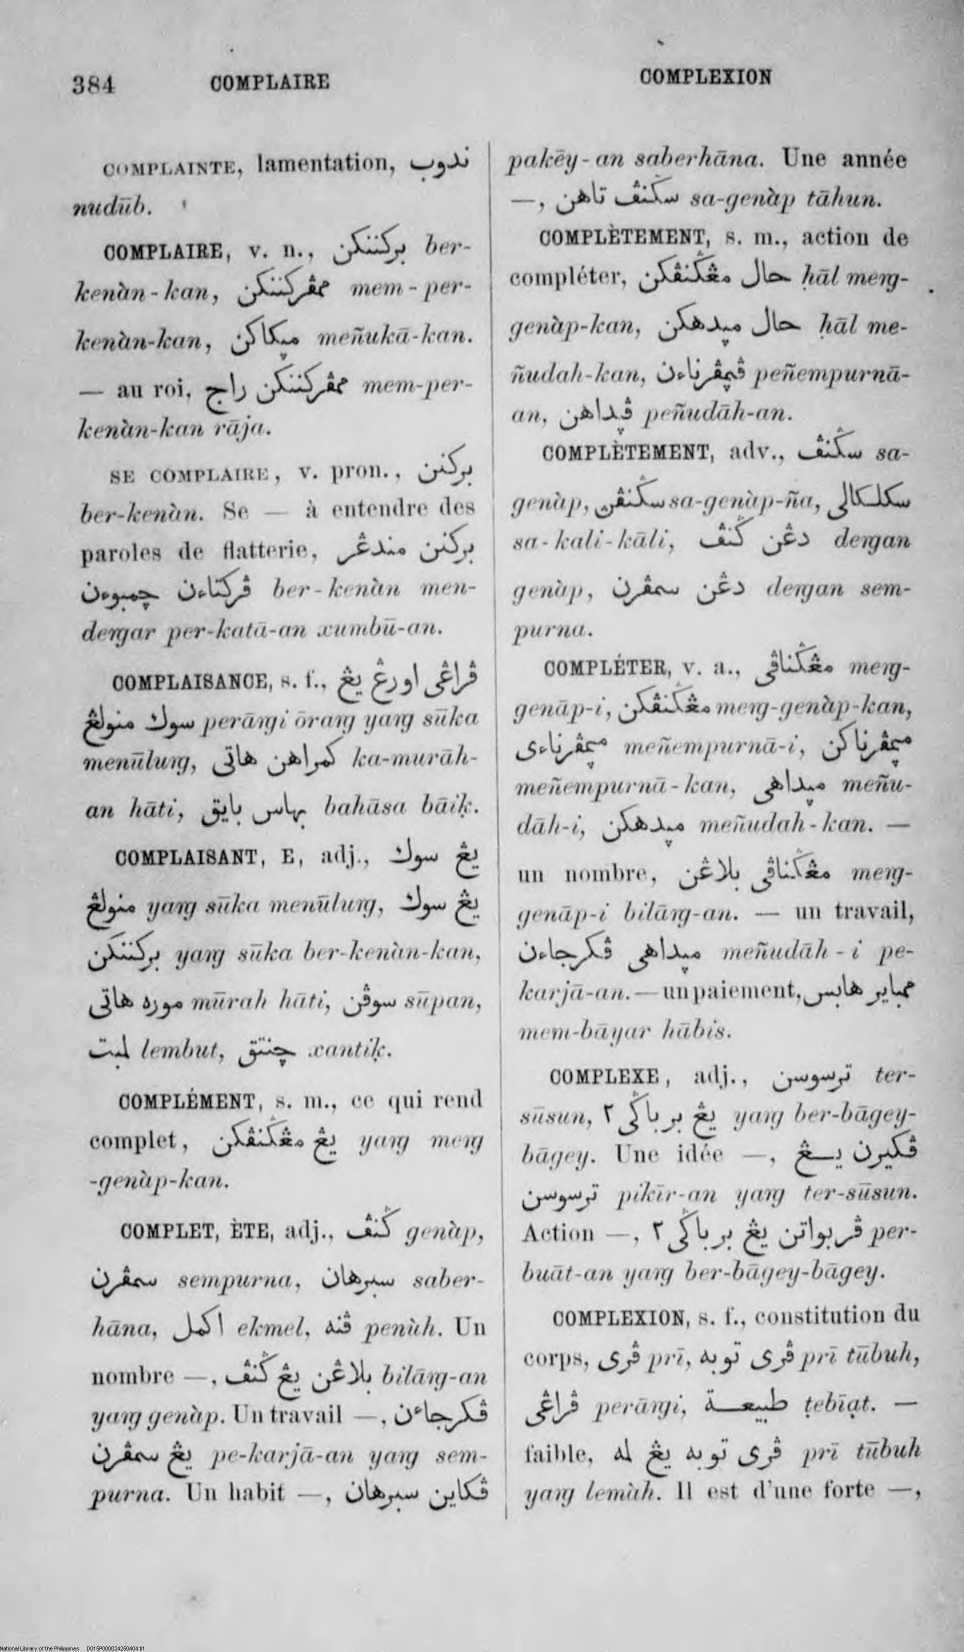 384 COMPLAIRE COMPLEXION
COMPLAINTE, lamentation, ندوب
nudūb.
COMPLAIRE, v. n., برکننکن ber-
kenàn-kan, ممڤرکننکن mem-per-
kenàn-kan, مپکاکن meñukā-kan.
— au roi, ممڤرکننکن راج mem-per-
kenàn-kan rāja.
SE COMPLAIRE, v. pron., برکنن
ber-kenàn. Se — à entendre des
paroles de flatterie, برکنن مندڠر
ڤرکتاءن چمبوءن ber-kenàn men-
deṛgar per-katā-an xumbū-an.
COMPLAISANCE, s. f., ڤراڠی اورڠ يڠ
سوك منولڠ perāṛgi ōraṛg yaṛg sūka
menūluṛg, کمراهن هاتی ka-murāh-
an hāti, بهاس بايق bahāsa bāiḳ.
COMPLAISANT, E, adj., يڠ سوك
منولڠ yaṛg sūka menūluṛg, يڠ سوك
برکننکن yaṛg sūka ber-kenàn-kan,
موره هاتی mūrah hāti, سوڤن sūpan,
لمبت lembut, چنتق xantiḳ.
COMPLÉMENT, s. m., ce qui rend
complet, يڠ مڠݢنڤکن yaṛg meṛg
-genàp-kan.
COMPLET, ÈTE, adj., ݢنڤ genàp,
سمڤرن sempurna, سبرهان saber-
hāna, اکمل ekmel, ڤنه penùh. Un
nombre —, بلاڠن يڠ ݢنڤ bilāṛg-an
yaṛg genàp. Un travail —, ڤکرجاءن
يڠ سمڤرن pe-karjā-an yaṛg sem-
purna. Un habit —, ڤکاين سبرهان
pakēy-an saberhāna. Une année
—, سݢنڤ تاهن sa-genàp tāhun.
COMPLÈTEMENT, s. m., action de
compléter, حال مڠݢنڤکن ḥāl meṛg-
genàp-kan, حال مپدهکن ḥāl me-
ñudah-kan, ڤپمڤرناءن peñempurnā-
an, ڤپداهن peñudāh-an.
COMPLÈTEMENT, adv., سݢنڤ sa-
genàp, سݢنڤن sa-genàp-ña, سکلکالی
sa-kali-kāli, دڠن ݢنڤ deṛgan
genàp, دڠن سمڤرن deṛgan sem-
purna.
COMPLÉTER, v. a., مڠݢناڤی meṛg-
genāp-i, مڠݢنڤکن meṛg-genàp-kan,
مپمڤرناءی meñempurnā-i, مپمڤرناکن
meñempurnā-kan, مپداهی meñu-
dāh-i, مپدهکن meñudah-kan. —
un nombre, مڠݢناڤی بلاڠن meṛg-
genāp-i bilāṛg-an. — un travail,
مپداهی ڤکرجاءن meñudāh-i pe-
karjā-an. — un paiement, ممباير هابس
mem-bāyar hābis.
COMPLEXE, adj., ترسوسن ter-
sūsun, يڠ برباݢی ٢ yaṛg ber-bāgey-
bāgey. Une idée —, ڤکيرن يڠ
ترسوسن pikīr-an yaṛg ter-sūsun.
Action —, ڤربواتن يڠ برباݢی ٢ per-
buāt-an yaṛg ber-bāgey-bāgey.
COMPLEXION, s. f., constitution du
corps, ڤری prī, ڤری توبه prī tūbuh,
ڤراڠی perāṛgi, طبيعة ṭebīạt. —
faible, ڤری توبه يڠ له prī tūbuh
yaṛg lemàh. Il est d'une forte —,
National Library of the Philippines